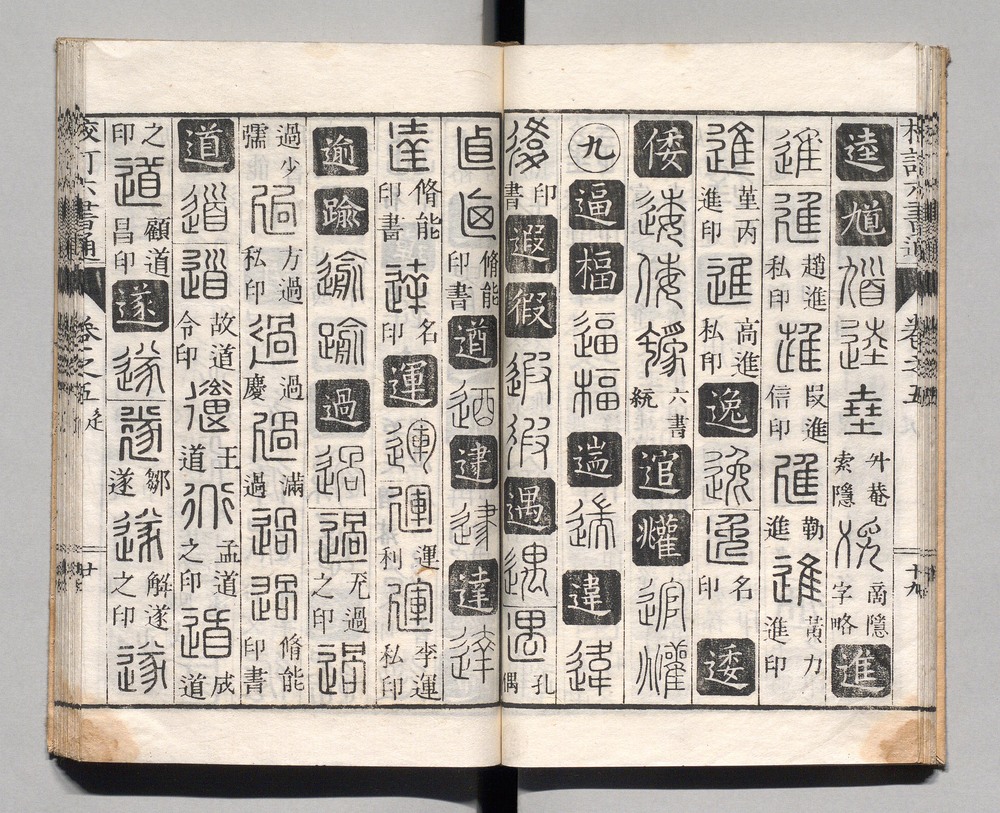 校訂六書通 卷之五 十九
逵 馗 馗 逵 升菴索隱 商隱字略 進
進 進 趙進私印 進 段進信印 進 勒進 進 黃力進印
進 菫丙進印 進 高進私印 逸 逸 逸 名印 逶
倭 逶 倭 六書統 逭 爟 逭 爟
九 逼 楅 逼 楅 遄 遄 違 違
印書 遐 徦 遐 徦 遇 遇 遇 孔偶
卣 卣 脩能印書 遒 逎 逮 逮 達 達
達 脩能印書 達 名印 運 運 運 運利 運 李運私印
逾 踰 逾 踰 過 過 過 充過之印 過
過少孺 過 方過私印 過 過慶 過 滿過 過 過 脩能印書
道 道 道 故道令印 道 王道 道 孟道之印 道 成道
之印 道 顧道昌印 遂 遂 遂 鄒遂 遂 解遂之印 遂
校訂六書通 卷之五 辵 廿